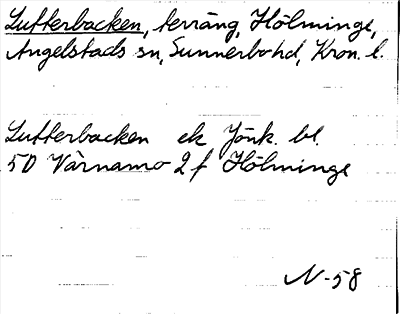 Lutterbacken, terräng, Hölminge,
Angelstads sn, Sunnerbo hd, Kron. l.
Lutterbacken ek Jönk. bl.
5D Värnamo 2 f Hölminge
N-58